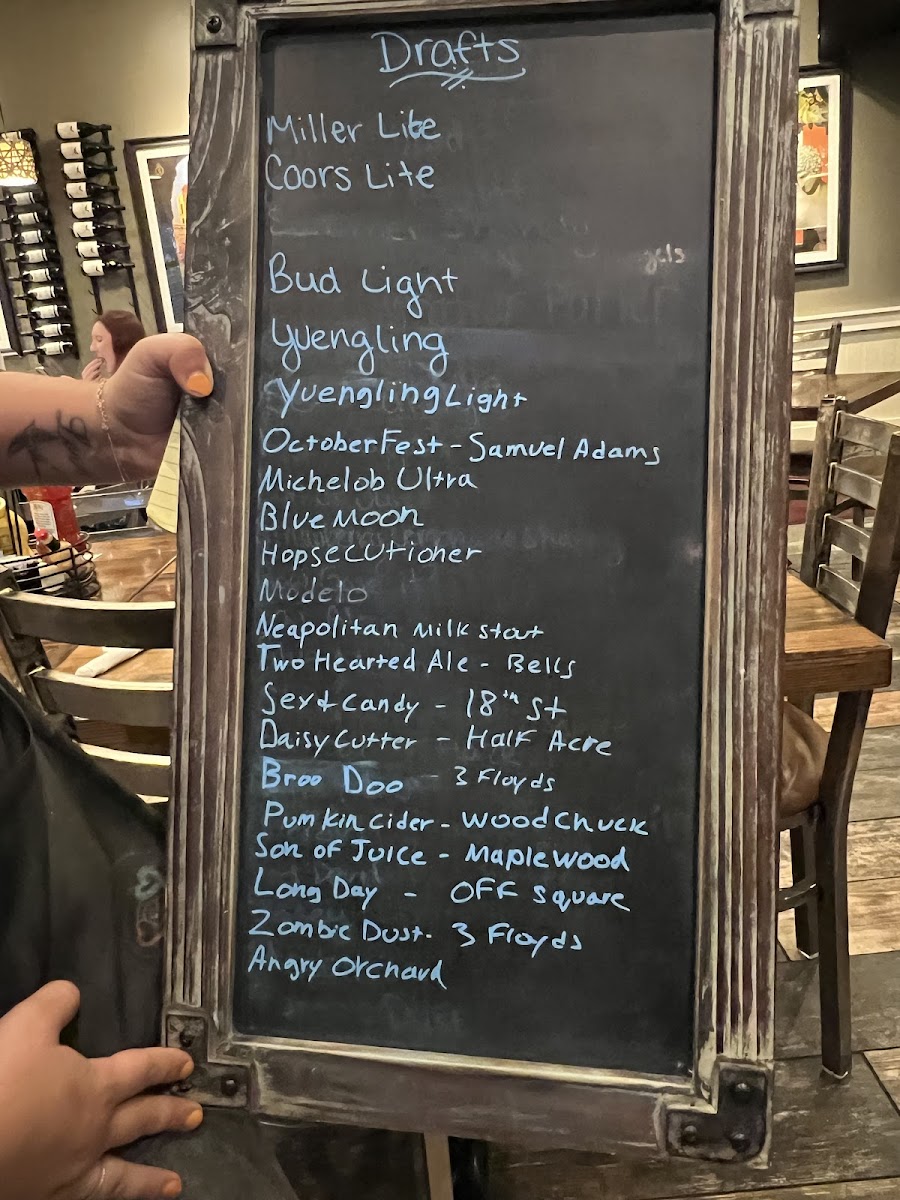 Drafts
Miller Lite
Coors Lite
Bud Light
Yuengling
Yuengling Light
OctoberFest - Samuel Adams
Michelob Ultra
Blue Moon
Hopsecutioner
Modelo
Neapolitan Milk Stout
Two Hearted Ale - Bells
Sex & Candy - 18th St
Daisy Cutter - Half Acre
Broo Doo - 3 Floyds
Pumkin Cider - Woodchuck
Son of Juice - Maplewood
Long Day - Off Square
Zombie Dust - 3 Floyds
Angry Orchard